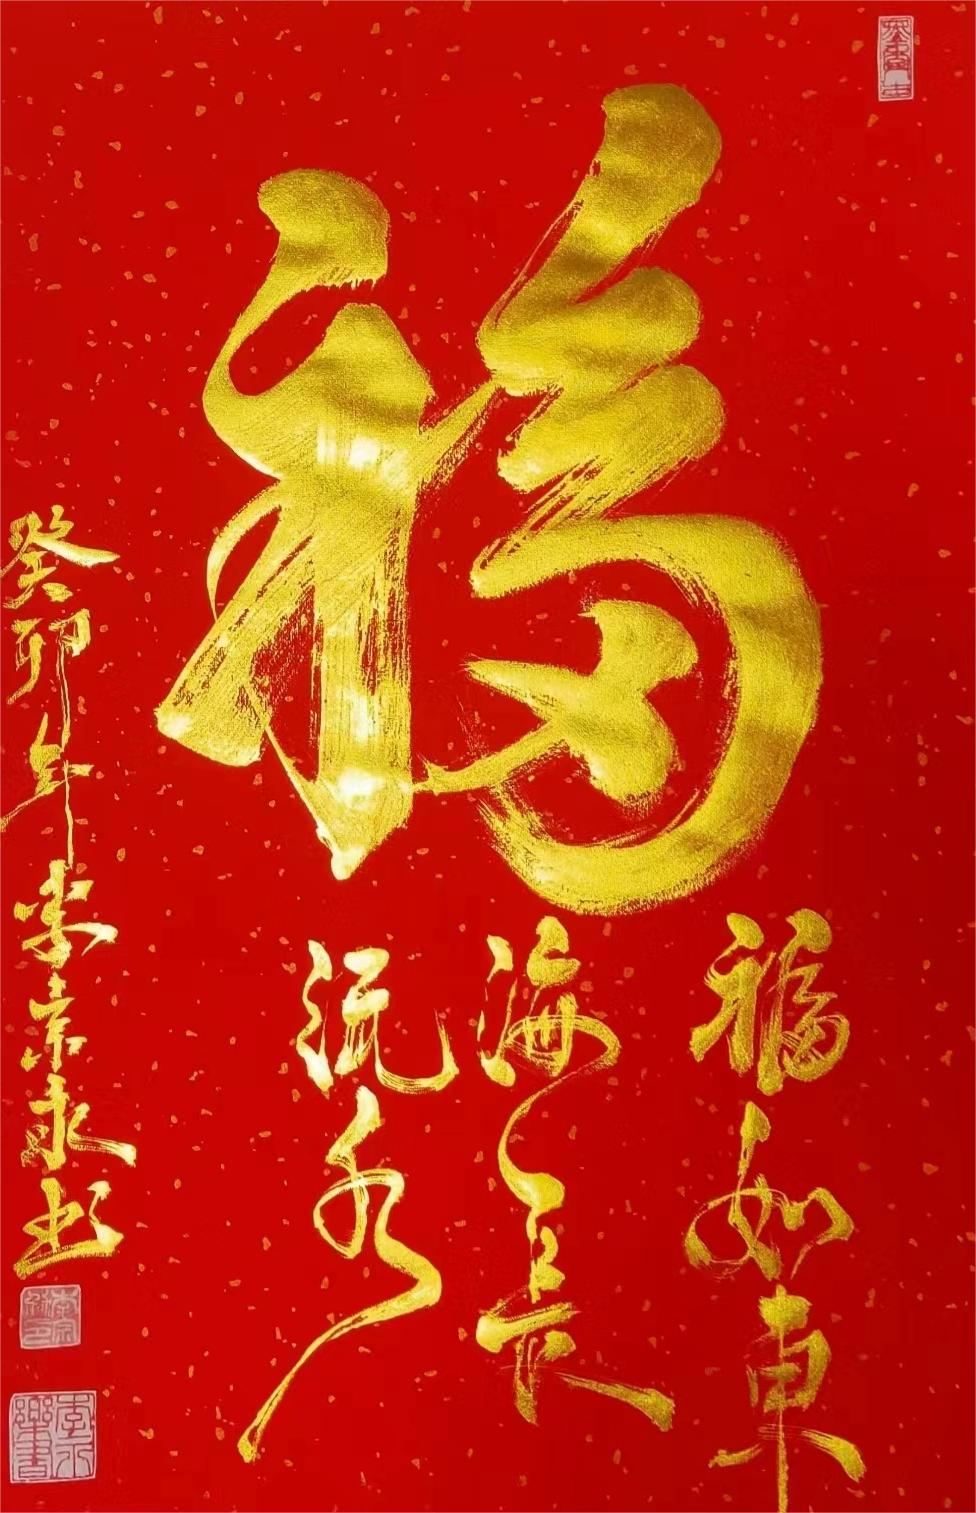 福
福如東
海長
流水
癸卯年永书